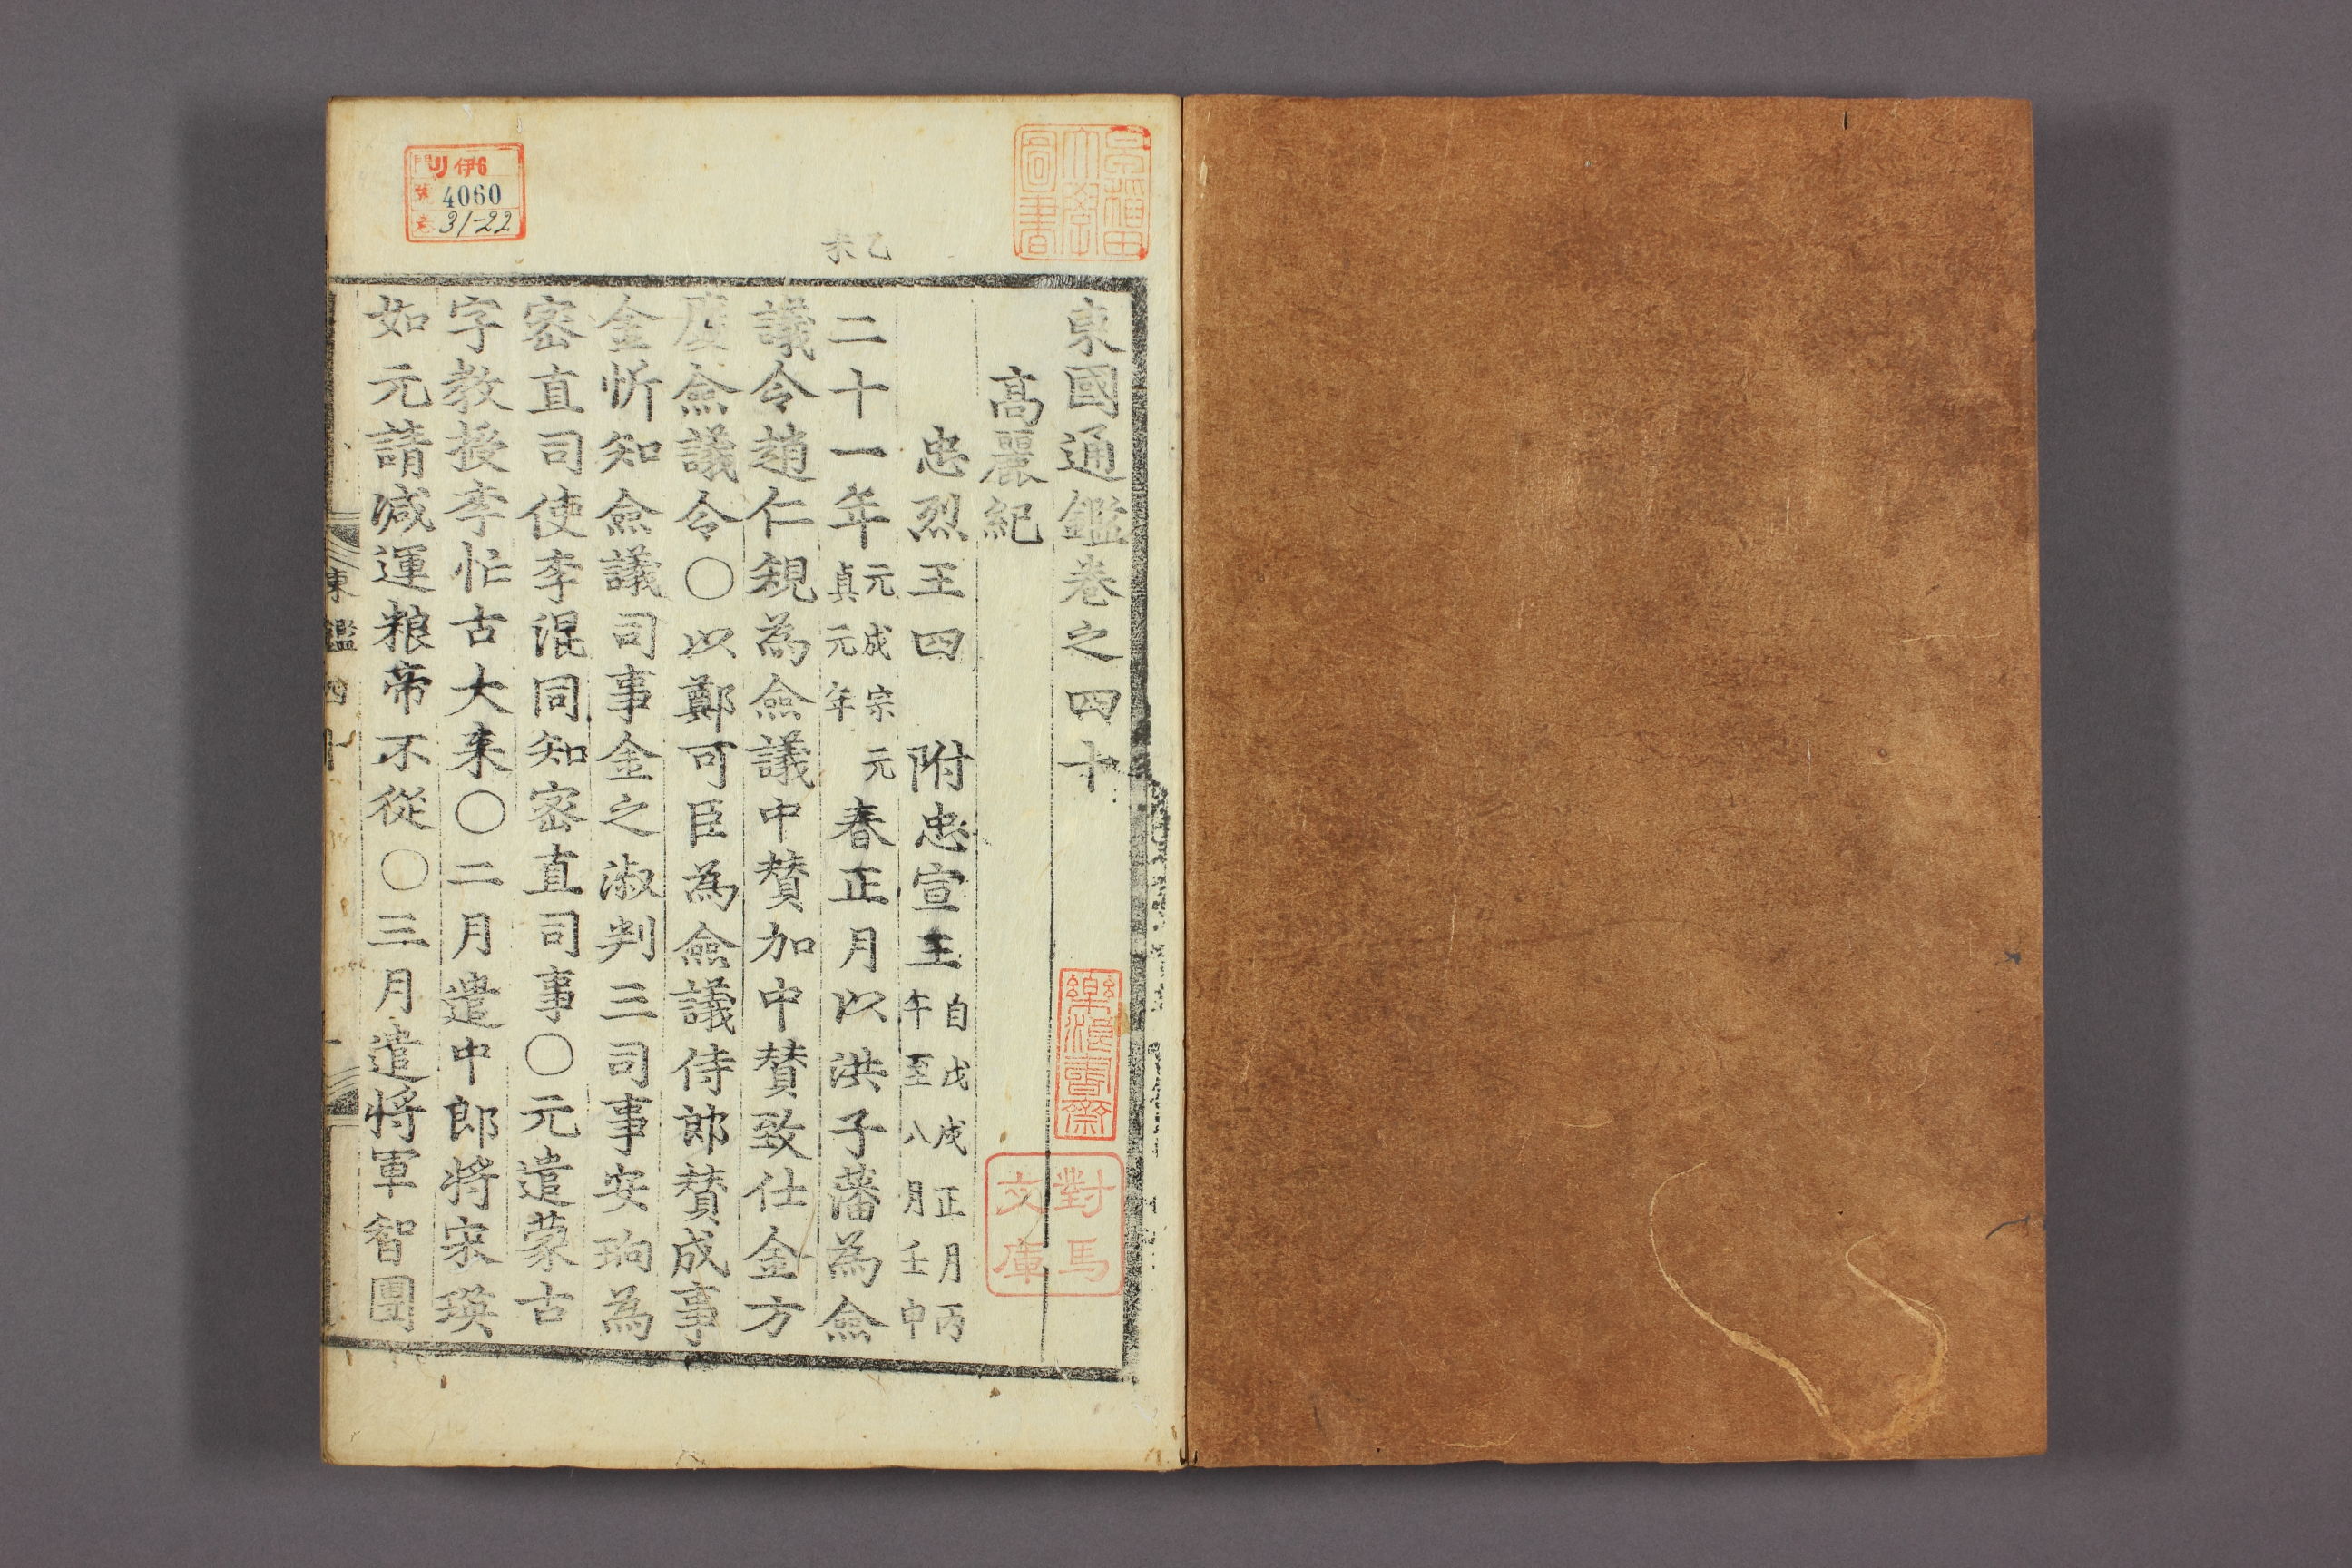 東國通鑑卷之四十
高麗紀
忠烈王四　附忠宣王 自戊戌正月丙午至八月壬申
乙未
二十一年 元成宗元貞元年 春正月以洪子藩為僉
議令趙仁規為僉議中贊加中贊致仕金方
慶僉議令○以鄭可臣為僉議侍郎贊成事
金忻知僉議司事金之淑判三司事安珦為
密直司使李混同知密直司事○元遣蒙古
字教授李忙古大来○二月遣中郎将宋瑛
如元請减運粮帝不從○三月遣将軍智團
東鑑四十
一
早稲田大學圖書
樂浪書齋
對馬文庫
門 リ 伊6
號 4060
卷 31-22